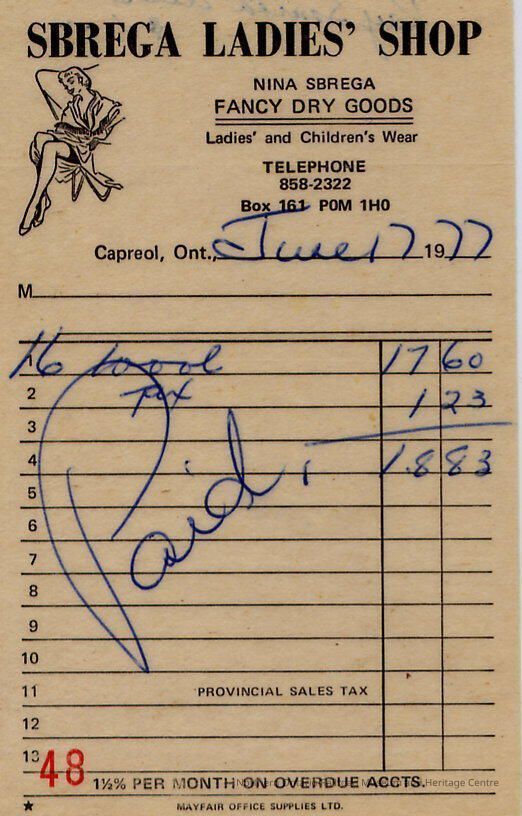 SBREGA LADIES' SHOP
NINA SBREGA
FANCY DRY GOODS
Ladies' and Children's Wear
TELEPHONE
858-2322
Box 161 P0M 1H0
Capreol, Ont., June 17 1977
M
1 16 wool 17 60
2 Tax 1 23
3
4 18 83
Paid
5
6
7
8
9
10
11 PROVINCIAL SALES TAX
12
13
48 1½% PER MONTH ON OVERDUE ACCTS.
Heritage Centre
★ MAYFAIR OFFICE SUPPLIES LTD.